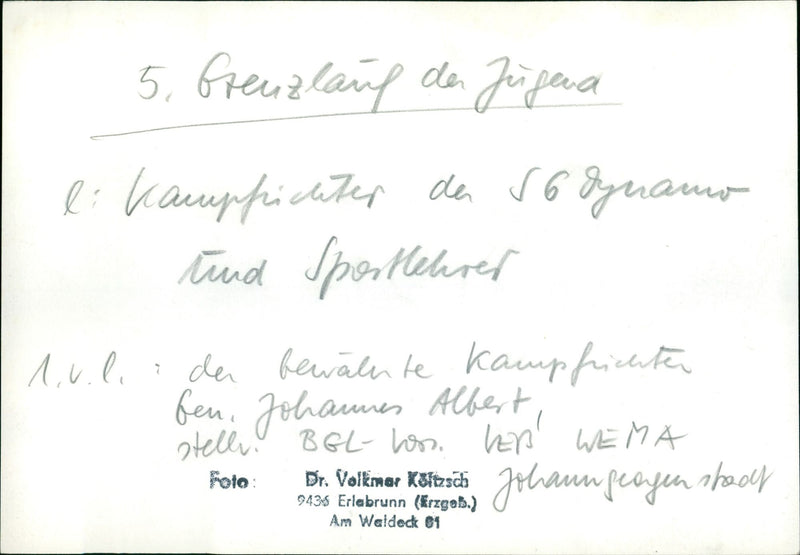 5. Grenzlauf der Jugend
l: Kampfrichter der SG Dynamo
und Sportlehrer
1.v.l.: der bewährte Kampfrichter
Gen. Johannes Albert,
stellv. BGL-Vors. VEB WEMA
Johanngeorgenstadt
Foto: Dr. Volkmar Költzsch
9436 Erlabrunn (Erzgeb.)
Am Waldeck 81